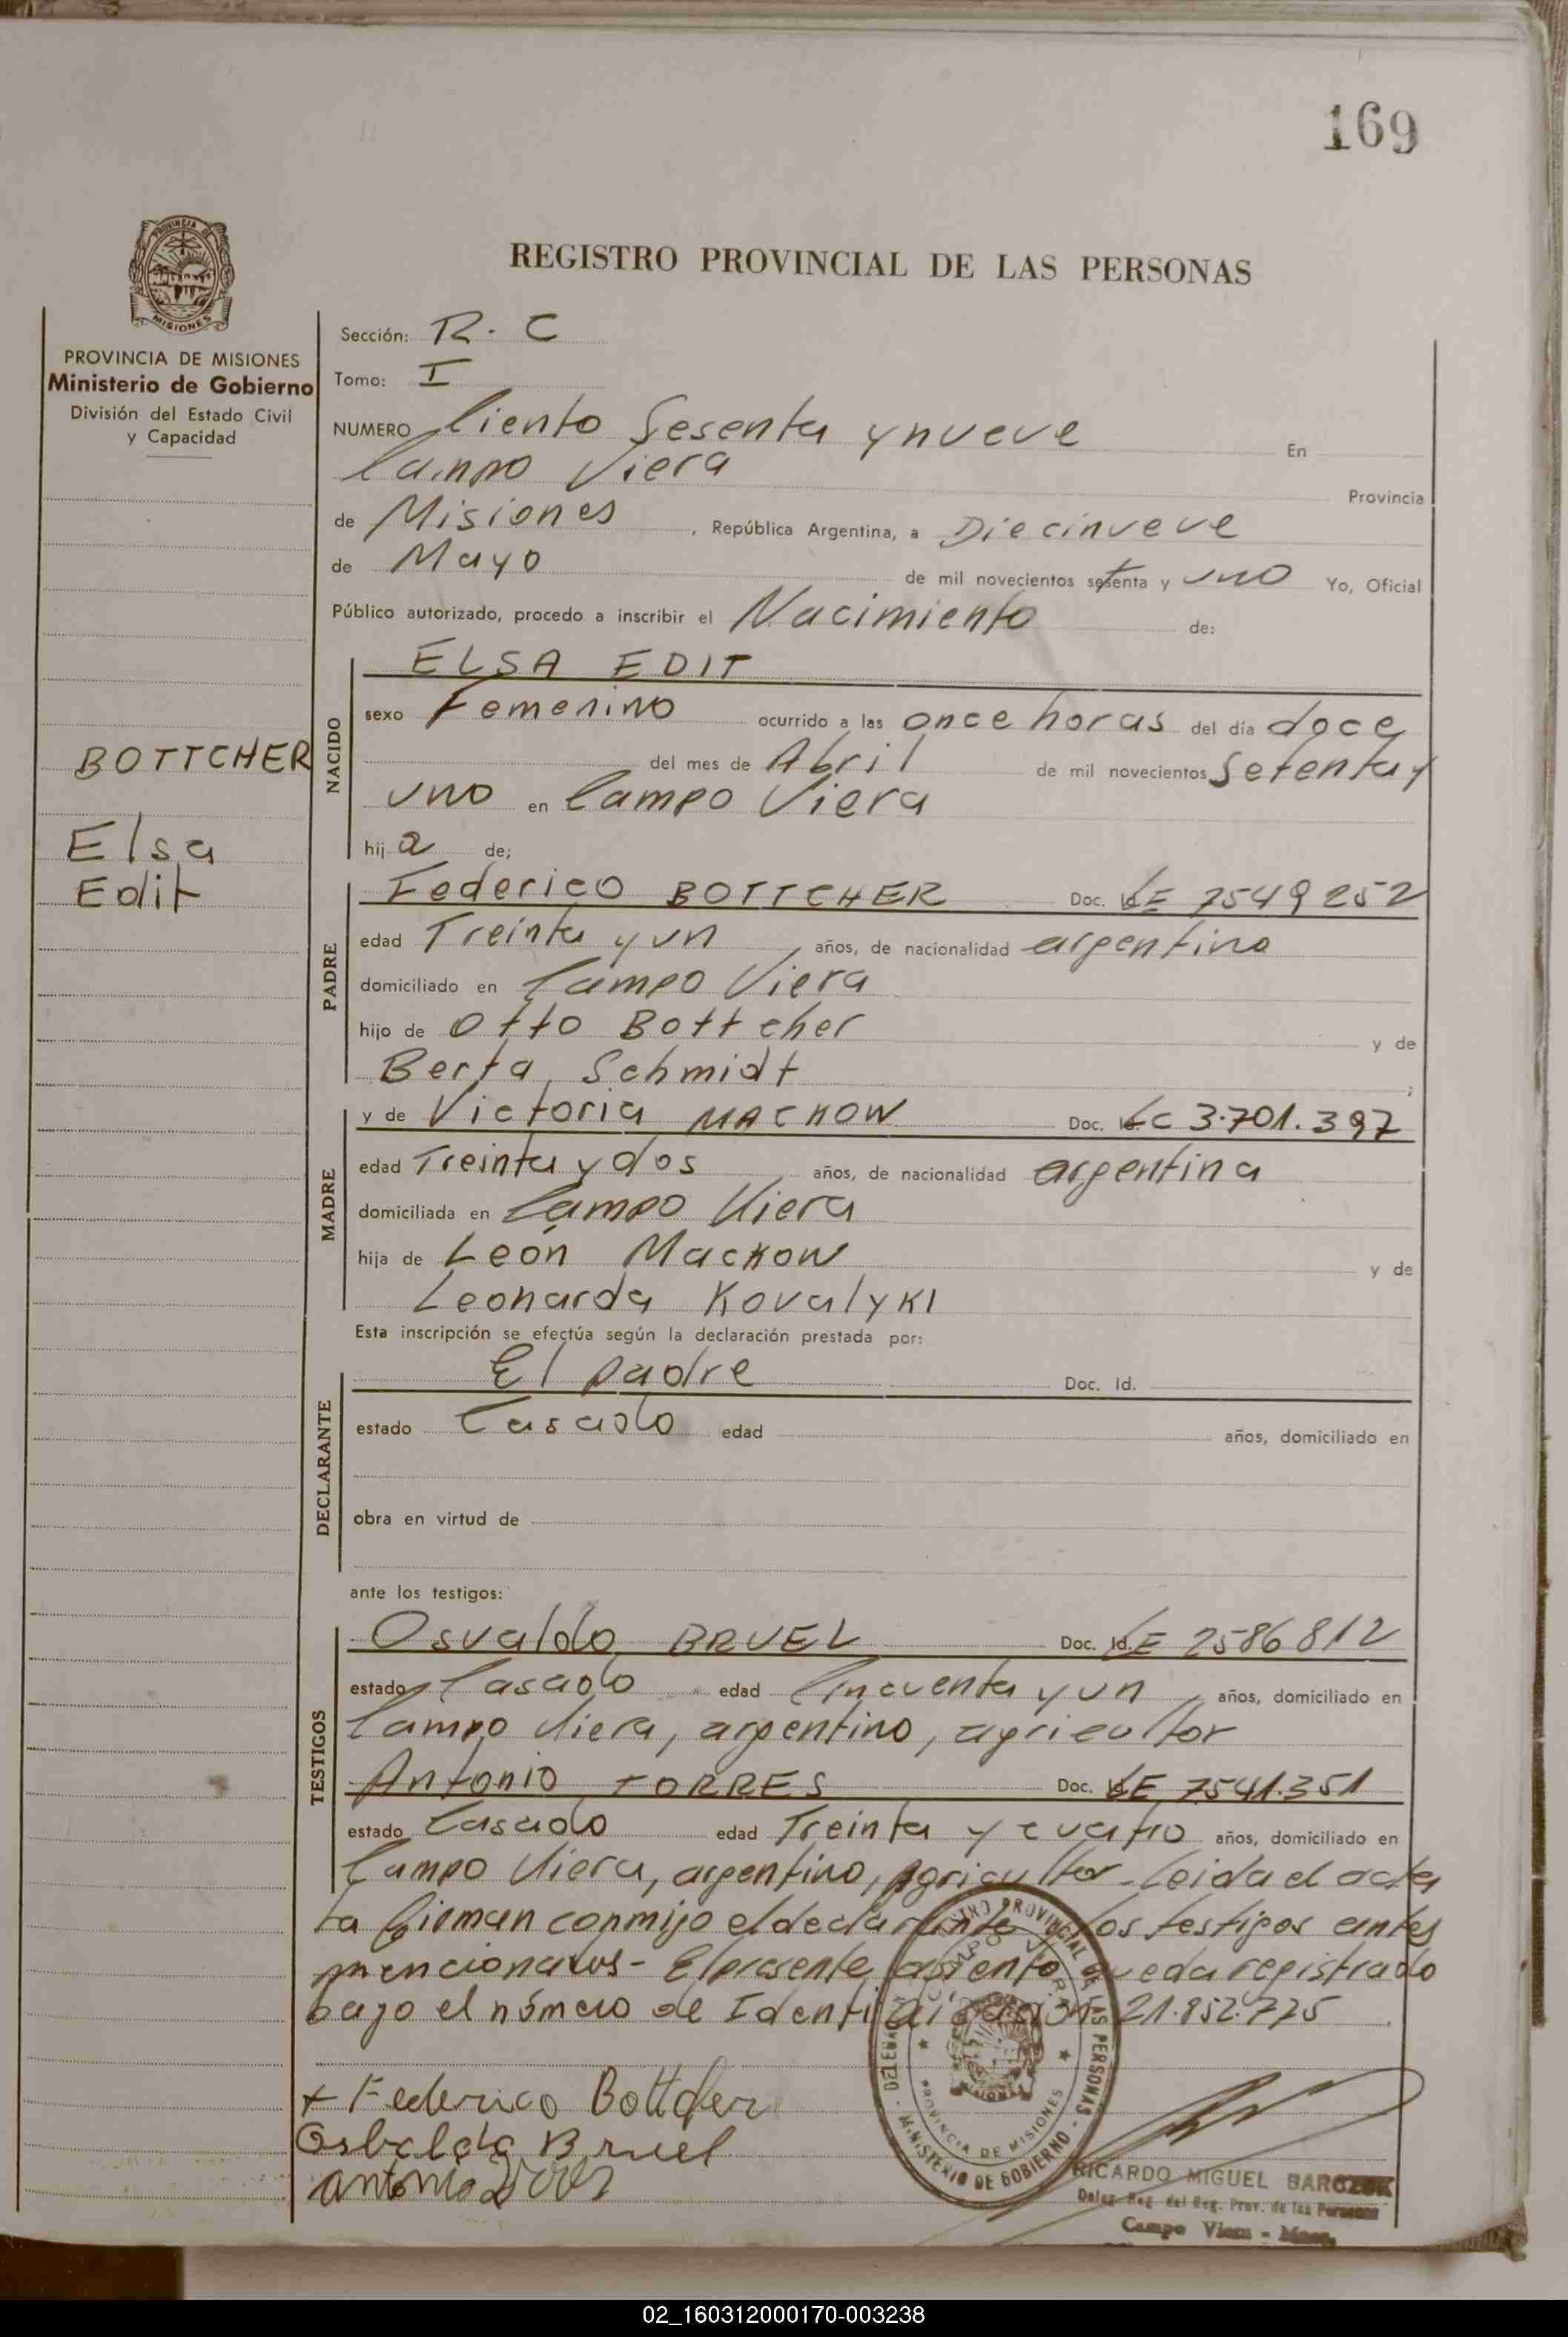 169
PROVINCIA DE
MISIONES
REGISTRO PROVINCIAL DE LAS PERSONAS
PROVINCIA DE MISIONES
Ministerio de Gobierno
División del Estado Civil
y Capacidad
BOTTCHER
Elsa
Edit
Sección: R. C
Tomo: I
NUMERO Ciento Sesenta y nueve En
Campo Viera Provincia
de Misiones, República Argentina, a Diecinueve
de Mayo de mil novecientos setenta y uno Yo, Oficial
Público autorizado, procedo a inscribir el Nacimiento de:
NACIDO
ELSA EDIT
sexo Femenino ocurrido a las once horas del día doce
del mes de Abril de mil novecientos Setenta y
uno en Campo Viera
hija de;
PADRE
Federico BOTTCHER Doc. Id. LE 7549252
edad Treinta y un años, de nacionalidad argentino
domiciliado en Campo Viera
hijo de Otto Bottcher y de
Berta Schmidt ;
MADRE
y de Victoria MACKOW Doc. Id. LC 3.701.397
edad Treinta y dos años, de nacionalidad argentina
domiciliada en Campo Viera
hija de León Mackow y de
Leonarda Kovalyki
Esta inscripción se efectúa según la declaración prestada por:
DECLARANTE
El padre Doc. Id.
estado Casado edad años, domiciliado en
obra en virtud de
ante los testigos:
TESTIGOS
Osvaldo BRUEL Doc. Id. LE 2586812
estado Casado edad Cincuenta y un años, domiciliado en
Campo Viera, argentino, agricultor
Antonio TORRES Doc. Id. LE 7541.351
estado Casado edad Treinta y cuatro años, domiciliado en
Campo Viera, argentino, agricultor - Leida el acta
la firman conmigo el declarante los testigos antes
mencionados - El presente asiento queda registrado
bajo el número de Identificación 21.852.775
+ Federico Bottcher
Osbaldo Bruel
antonio
REGISTRO PROVINCIAL DE LAS PERSONAS - MINISTERIO DE GOBIERNO - DELEGACION
CAMPO VIERA
PROVINCIA DE MISIONES
RICARDO MIGUEL
Deleg. Reg. del Reg. Prov. de las Personas
Campo Viera - Mnes.
02_160312000170-003238